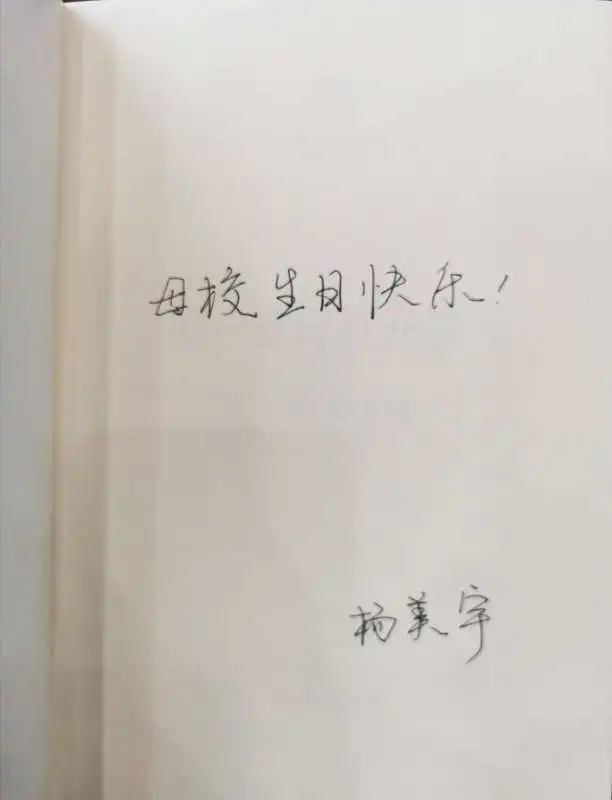 母校生日快乐！
杨美宇